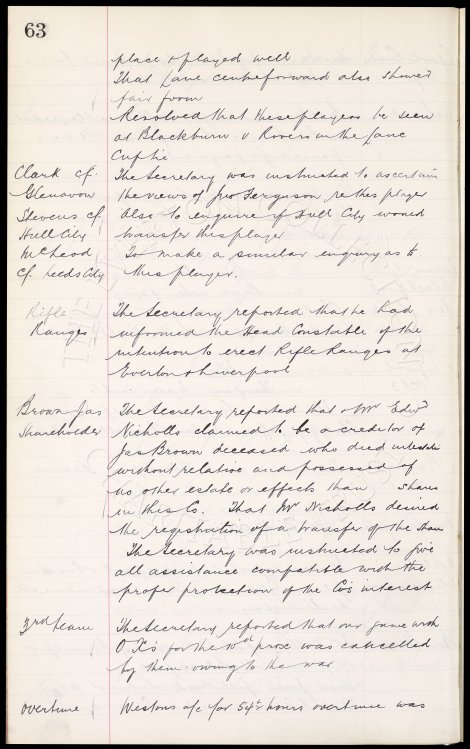 63
place & played well
That Lane centreforward also showed
fair form
Resolved that these players be seen
at Blackburn v Rovers in the Lanc
Cup tie
Clark cf.
Glenavon
The Secretary was instructed to ascertain
the views of Jno Ferguson re this player
Stevens cf
Hull City
Also to enquire if Hull City would
transfer this player
McLeod
cf. Leeds City
To make a similar enquiry as to
this player.
Rifle
Ranges
The Secretary reported that he had
informed the Head Constable of the
intention to erect Rifle Ranges at
Everton & Liverpool
Brown Jas
Shareholder
The Secretary reported that a Mr Edwd
Nicholls claimed to be a creditor of
Jas Brown deceased who died intestate
without relative and possessed of
no other estate or effects than shares
in this Co. That Mr Nicholls desired
the registration of a transfer of the shares
The Secretary was instructed to give
all assistance compatible with the
proper protection of the Co's interest
3rd team
The Secretary reported that our game with
O X's for the 10th prox was cancelled
by them owing to the war
Overtime
Westons a/c for 54½ hours overtime was